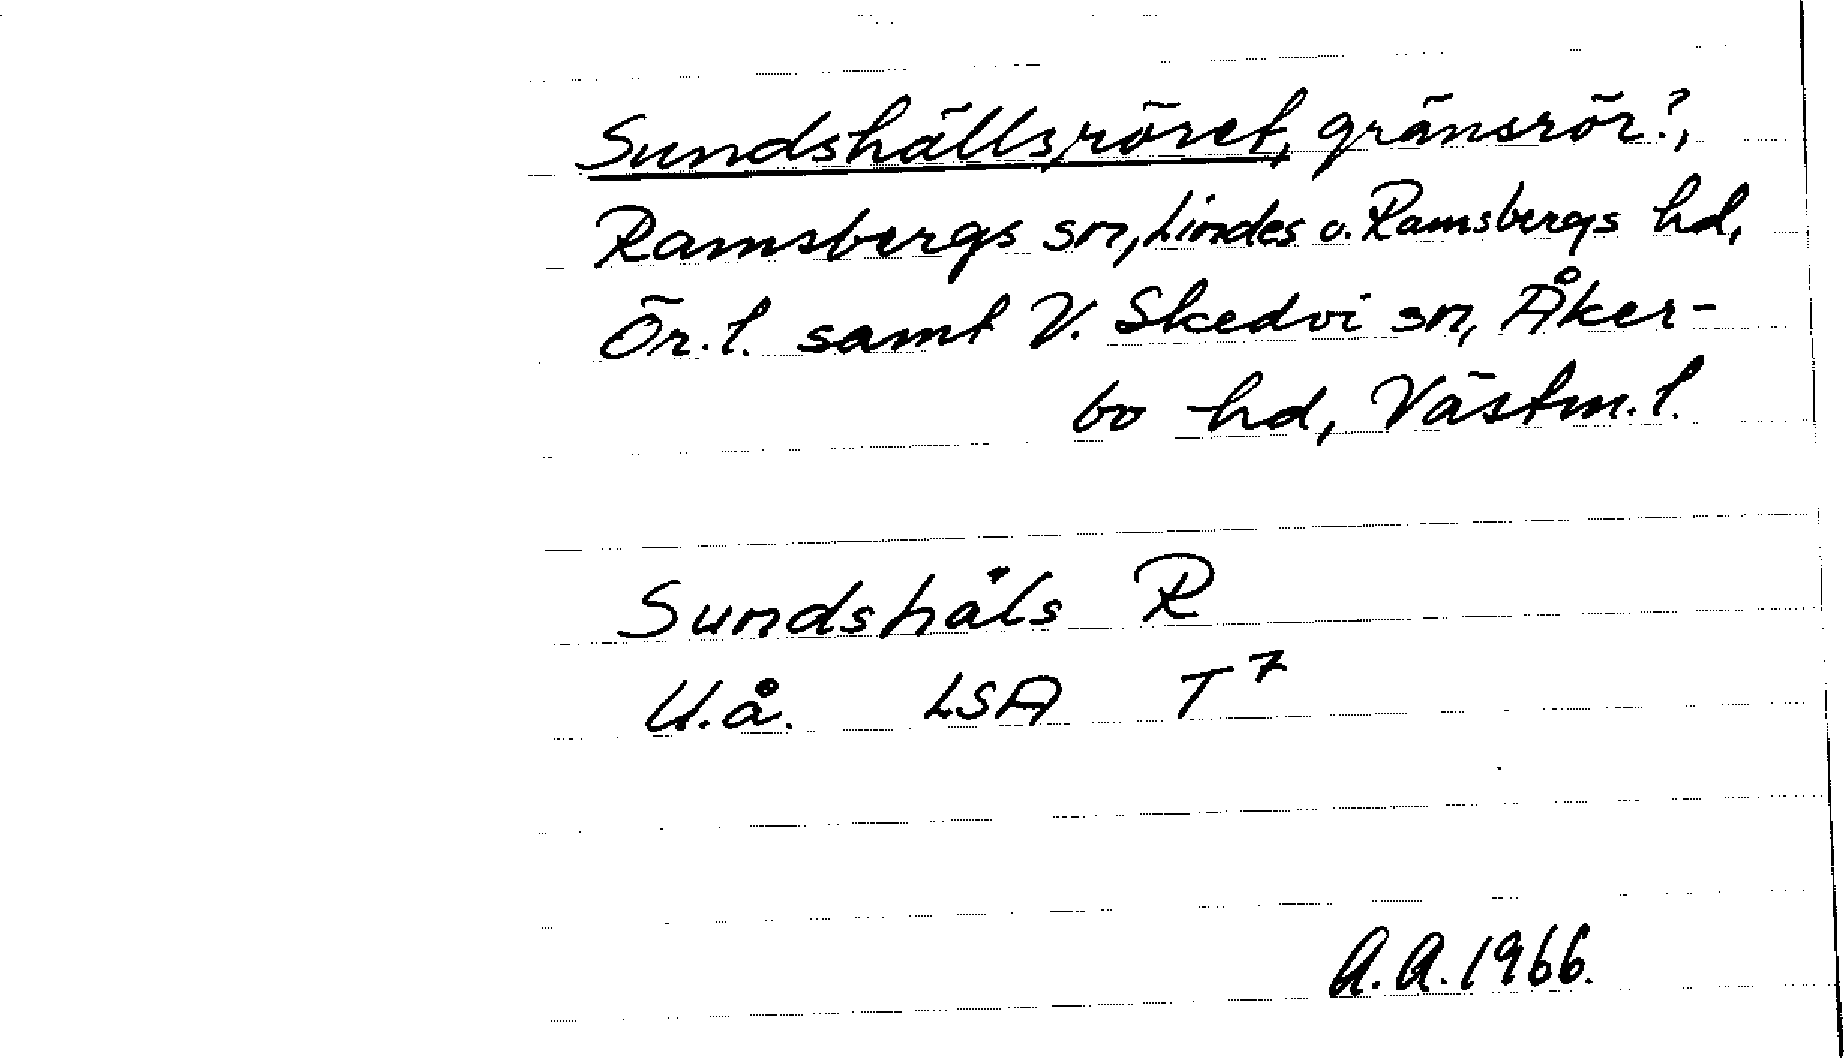 Sundshällsröret, gränsrör?,
Ramsbergs sn, Lindes o. Ramsbergs hd,
Ör. l. samt V. Skedvi sn, Åker-
bo hd, Västm. l.
Sundshäls R
U.å. LSA T7
A.A. 1966.